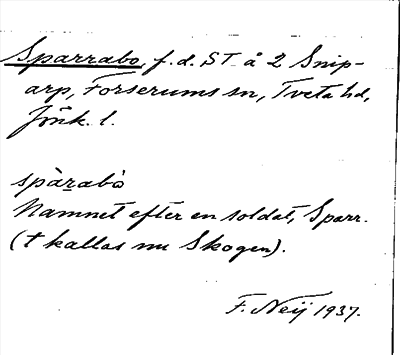 Sparrabo, f.d. ST å 2 Snip-
arp, Forserums sn, Tveta hd,
Jönk. l.
spàrabò
Namnet efter en soldat, Sparr.
(† kallas nu Skogen).
F. Neij 1937.